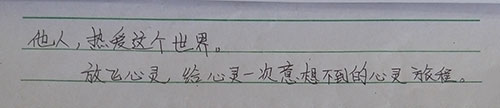 他人，热爱这个世界。
放飞心灵，给心灵一次意想不到的心灵旅程。